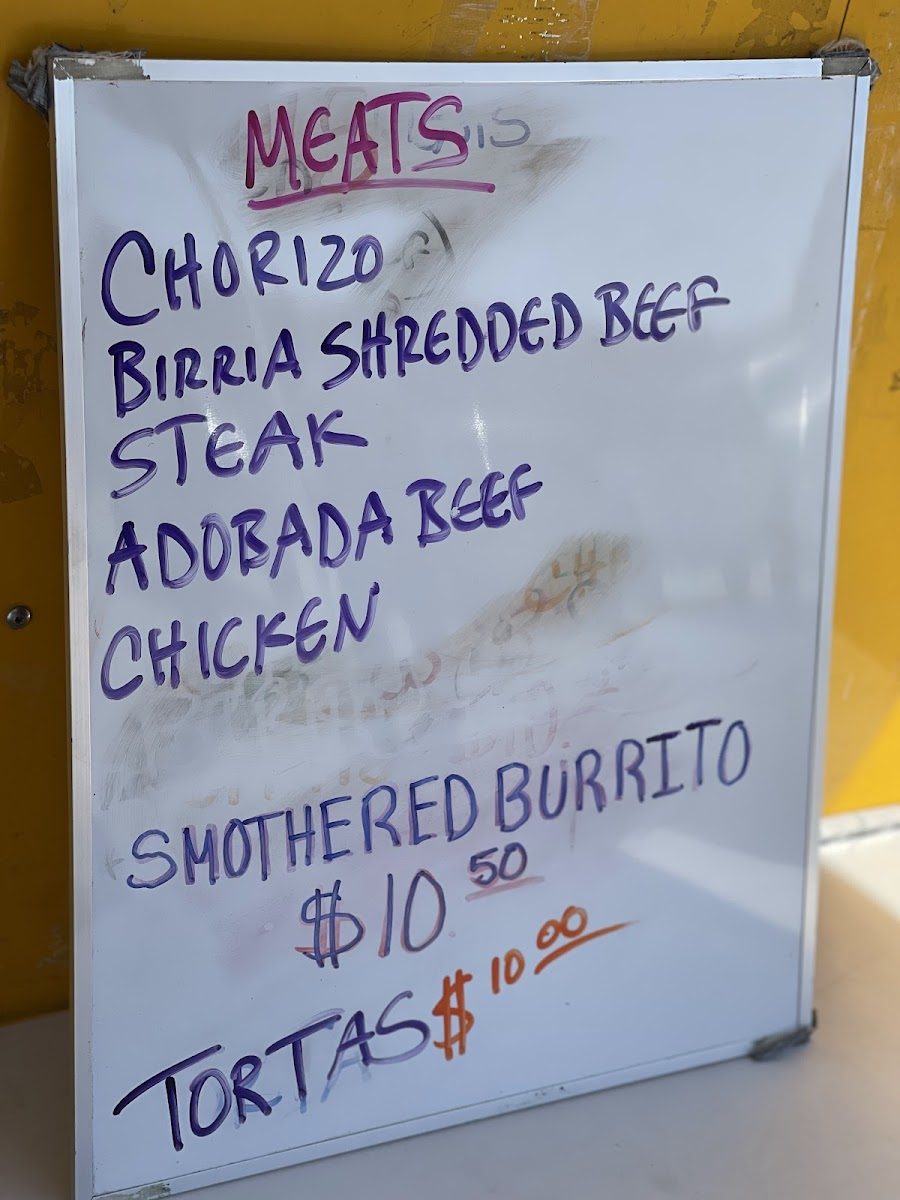 MEATS
CHORIZO
BIRRIA SHREDDED BEEF
STEAK
ADOBADA BEEF
CHICKEN
SMOTHERED BURRITO
$10.50
TORTAS $10 00